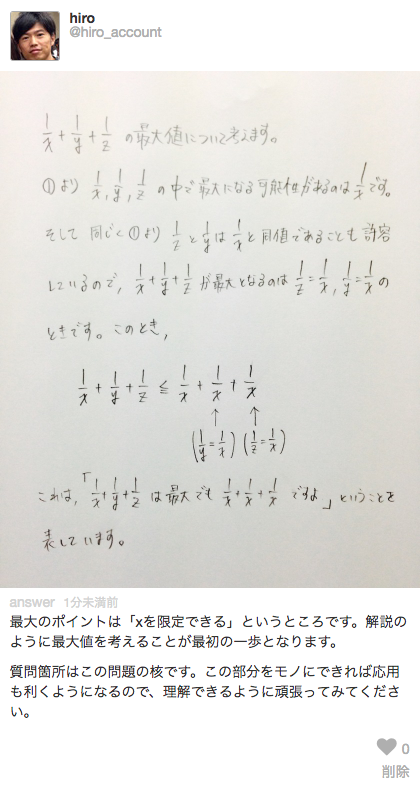 hiro
@hiro_account
1/x + 1/y + 1/z の最大値について考えます。
①より 1/x, 1/y, 1/z の中で最大になる可能性があるのは 1/x です。
そして 同じく①より 1/z と 1/y は 1/x と同値であることも許容
しているので, 1/x + 1/y + 1/z が最大となるのは 1/z = 1/x, 1/y = 1/x の
ときです。このとき,
1/x + 1/y + 1/z ≦ 1/x + 1/x + 1/x
↑ ↑
(1/y = 1/x) (1/z = 1/x)
これは,「1/x + 1/y + 1/z は最大でも 1/x + 1/x + 1/x ですよ」ということを
表しています。
answer 1分未満前
最大のポイントは「xを限定できる」というところです。解説の
ように最大値を考えることが最初の一歩となります。
質問箇所はこの問題の核です。この部分をモノにできれば応用
も利くようになるので、理解できるように頑張ってみてくださ
い。
0
削除